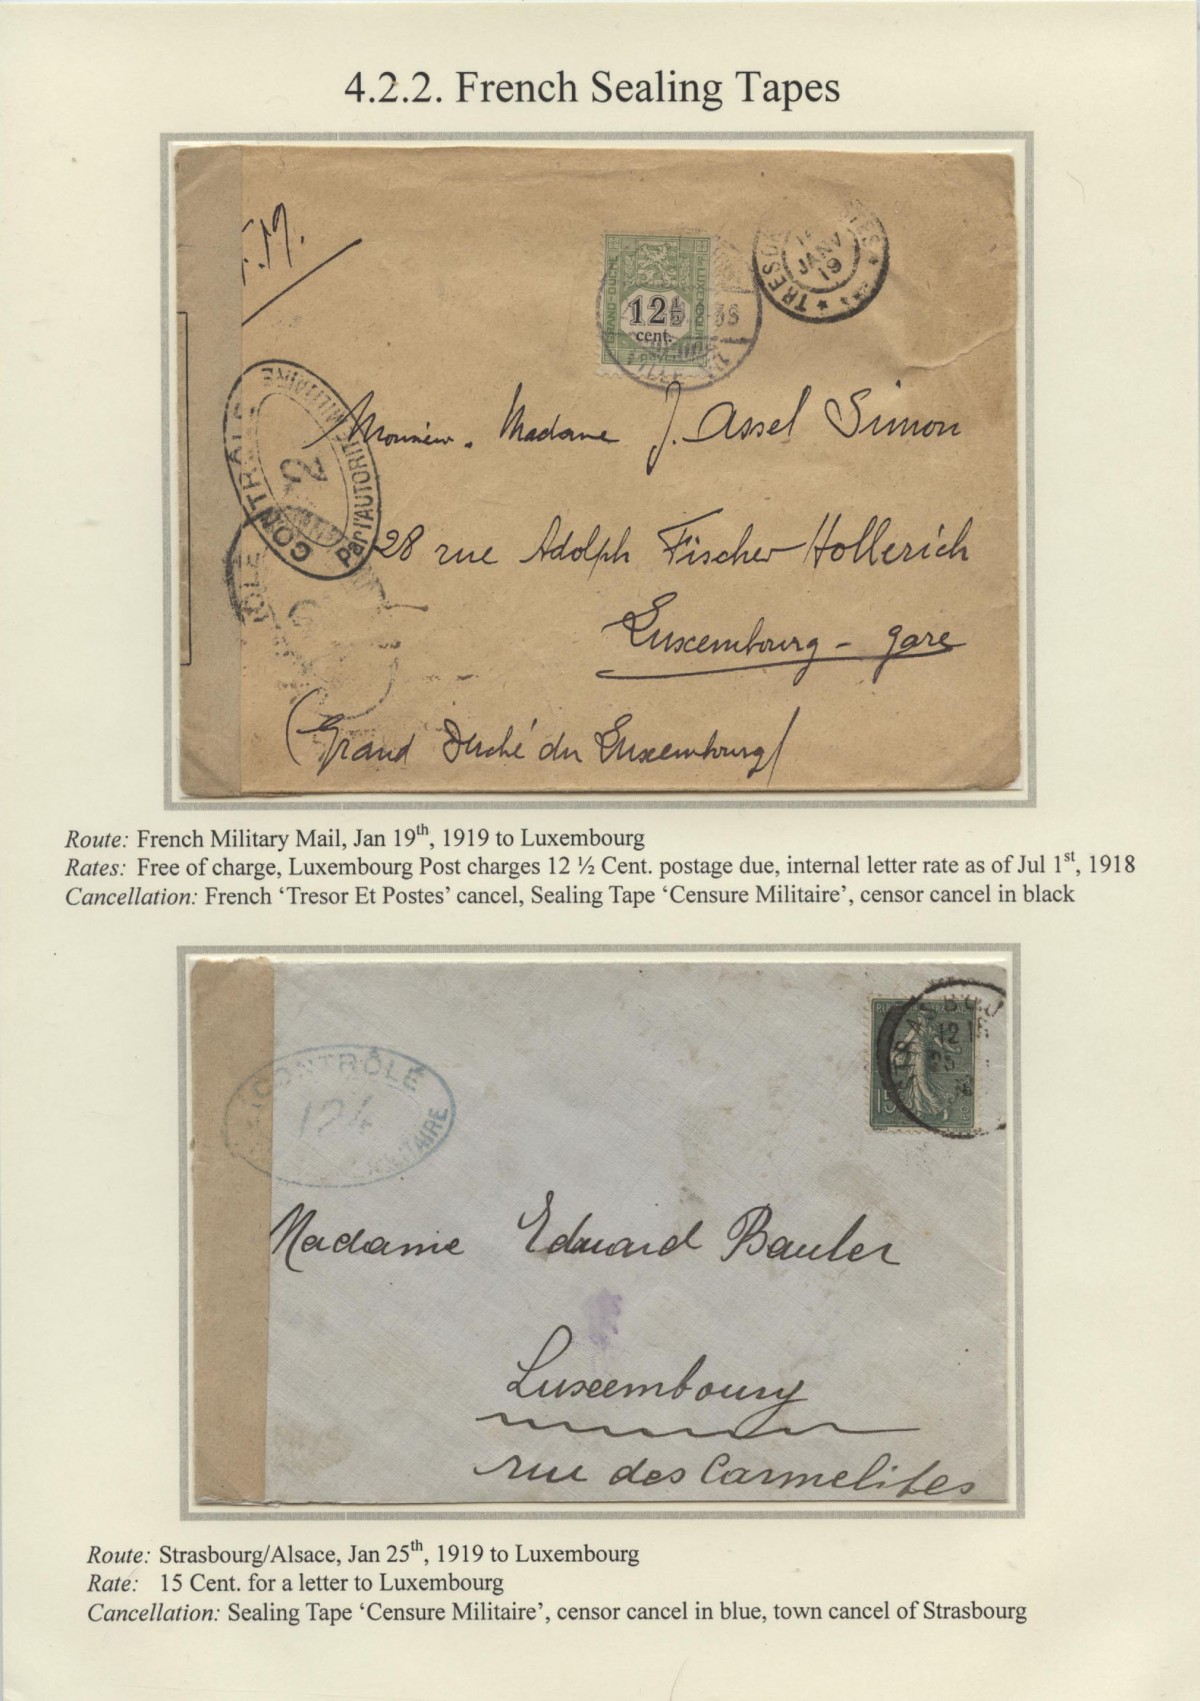 4.2.2. French Sealing Tapes
F.M.
GRAND-DUCHÉ DE LUXEMBOURG
12½
cent.
TRESOR
JANV
19
CONTRÔLE
MILITAIRE
Par l'AUTORITÉ
2
Monsieur. Madame J. Assel Simon
28 rue Adolph Fischer Hollerich
Luxembourg - gare
(Grand Duché du Luxembourg)
Route: French Military Mail, Jan 19th, 1919 to Luxembourg
Rates: Free of charge, Luxembourg Post charges 12 ½ Cent. postage due, internal letter rate as of Jul 1st, 1918
Cancellation: French ‘Tresor Et Postes’ cancel, Sealing Tape ‘Censure Militaire’, censor cancel in black
STRASBOU
12
15
CONTRÔLE
124
MILITAIRE
Madame Eduard Bauler
Luxembourg
rue des Carmelites
Route: Strasbourg/Alsace, Jan 25th, 1919 to Luxembourg
Rate: 15 Cent. for a letter to Luxembourg
Cancellation: Sealing Tape ‘Censure Militaire’, censor cancel in blue, town cancel of Strasbourg